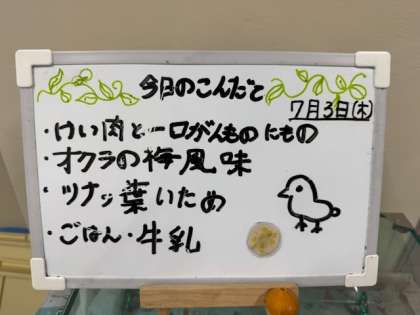 今日のこんだて
7月3日(木)
・けい肉と一口がんものにもの
・オクラの梅風味
・ツナッ葉いため
・ごはん・牛乳